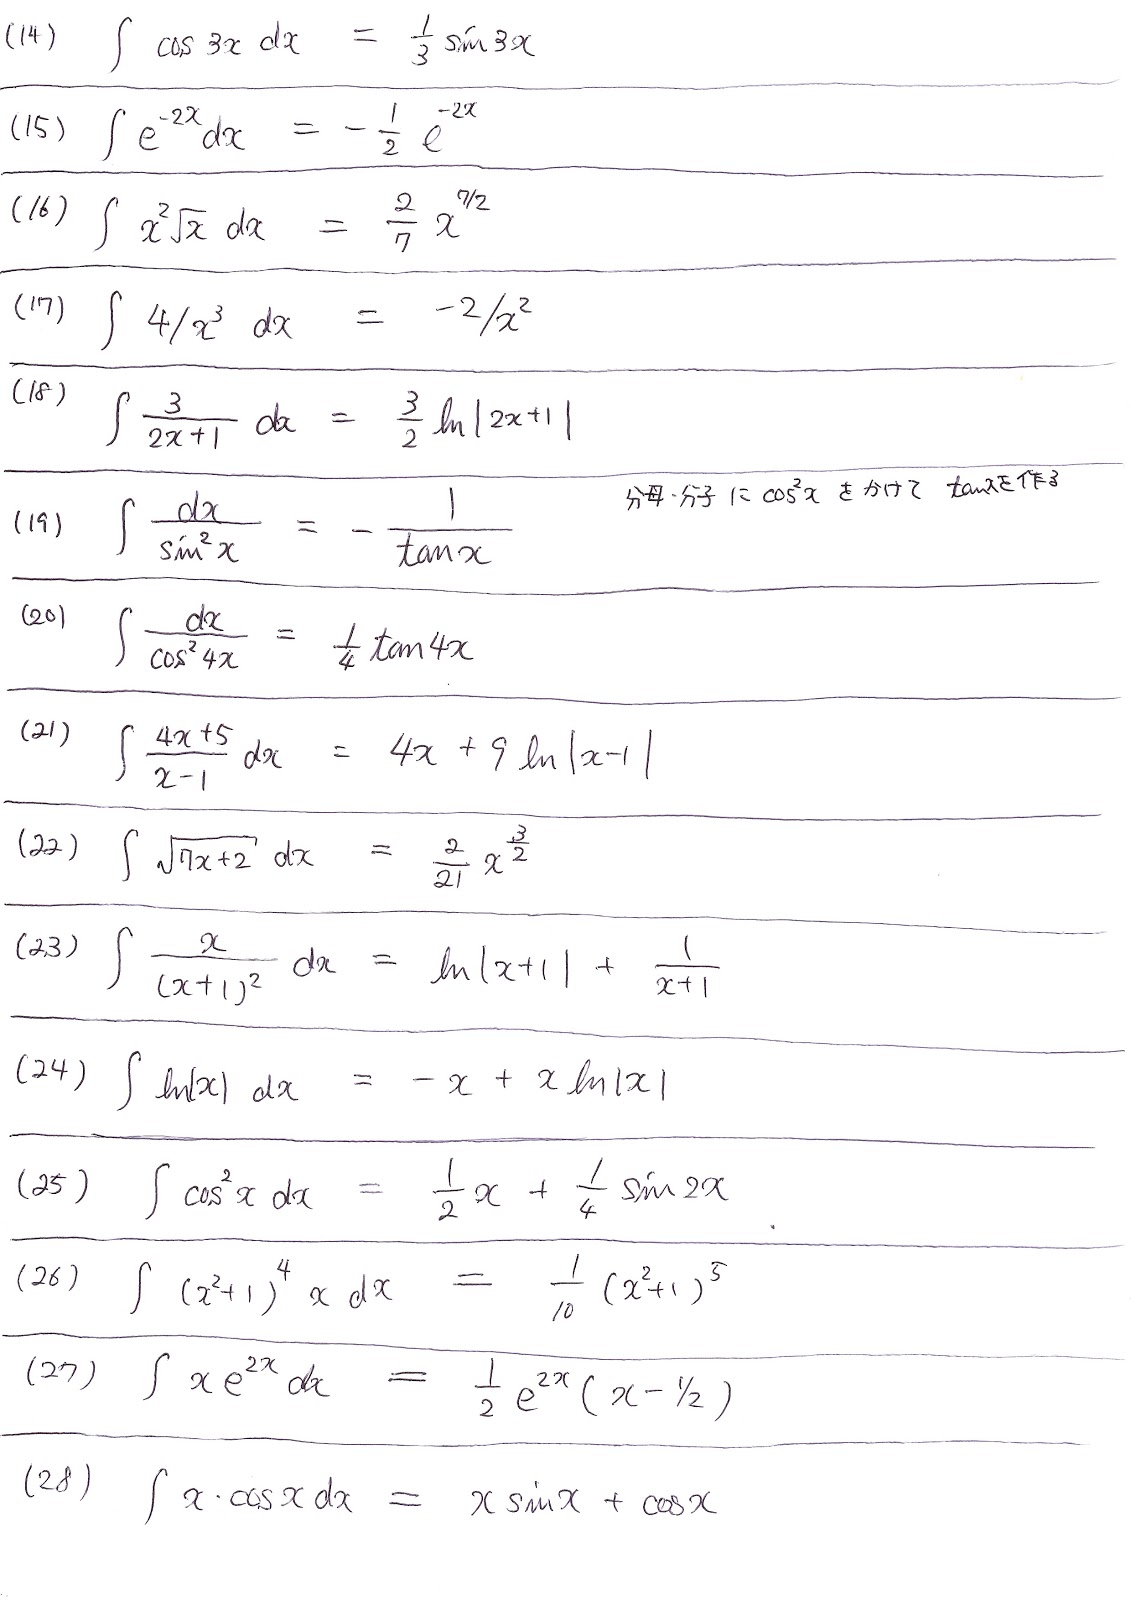 (14) ∫ cos 3x dx = 1/3 sin 3x
(15) ∫ e^{-2x} dx = - 1/2 e^{-2x}
(16) ∫ x²√x dx = 2/7 x^{7/2}
(17) ∫ 4/x³ dx = -2/x²
(18) ∫ 3/(2x+1) dx = 3/2 ln|2x+1|
分母・分子に cos²x をかけて tanxを作る
(19) ∫ dx/sin²x = - 1/tanx
(20) ∫ dx/cos²4x = 1/4 tan4x
(21) ∫ (4x+5)/(x-1) dx = 4x + 9 ln|x-1|
(22) ∫ √(7x+2) dx = 2/21 x^{3/2}
(23) ∫ x/(x+1)² dx = ln|x+1| + 1/(x+1)
(24) ∫ ln|x| dx = -x + x ln|x|
(25) ∫ cos²x dx = 1/2 x + 1/4 sin 2x
(26) ∫ (x²+1)⁴ x dx = 1/10 (x²+1)⁵
(27) ∫ x e^{2x} dx = 1/2 e^{2x} (x - 1/2)
(28) ∫ x·cosx dx = x sinx + cosx